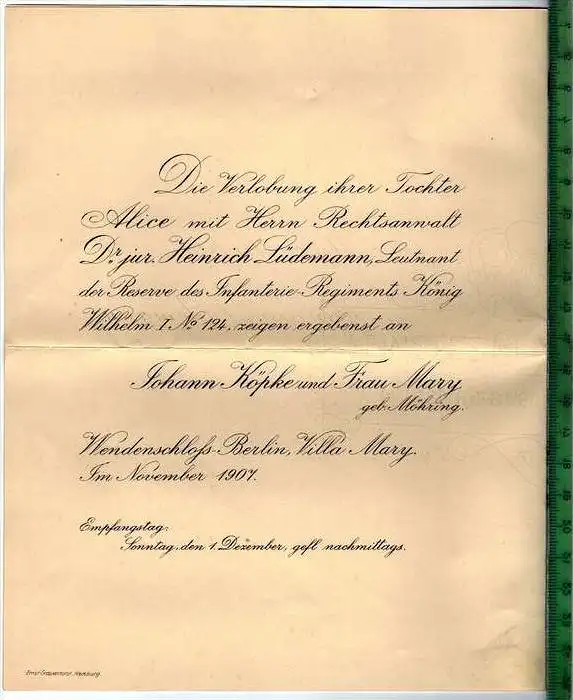 Die Verlobung ihrer Tochter
Alice mit Herrn Rechtsanwalt
Dr. jur. Heinrich Lüdemann, Leutnant
der Reserve des Infanterie-Regiments König
Wilhelm I. No 124, zeigen ergebenst an
Johann Köpke und Frau Mary
geb. Möhring.
Wendenschloß-Berlin, Villa Mary.
Im November 1907.
Empfangstag:
Sonntag, den 1. Dezember, gefl. nachmittags.
Hamburg.